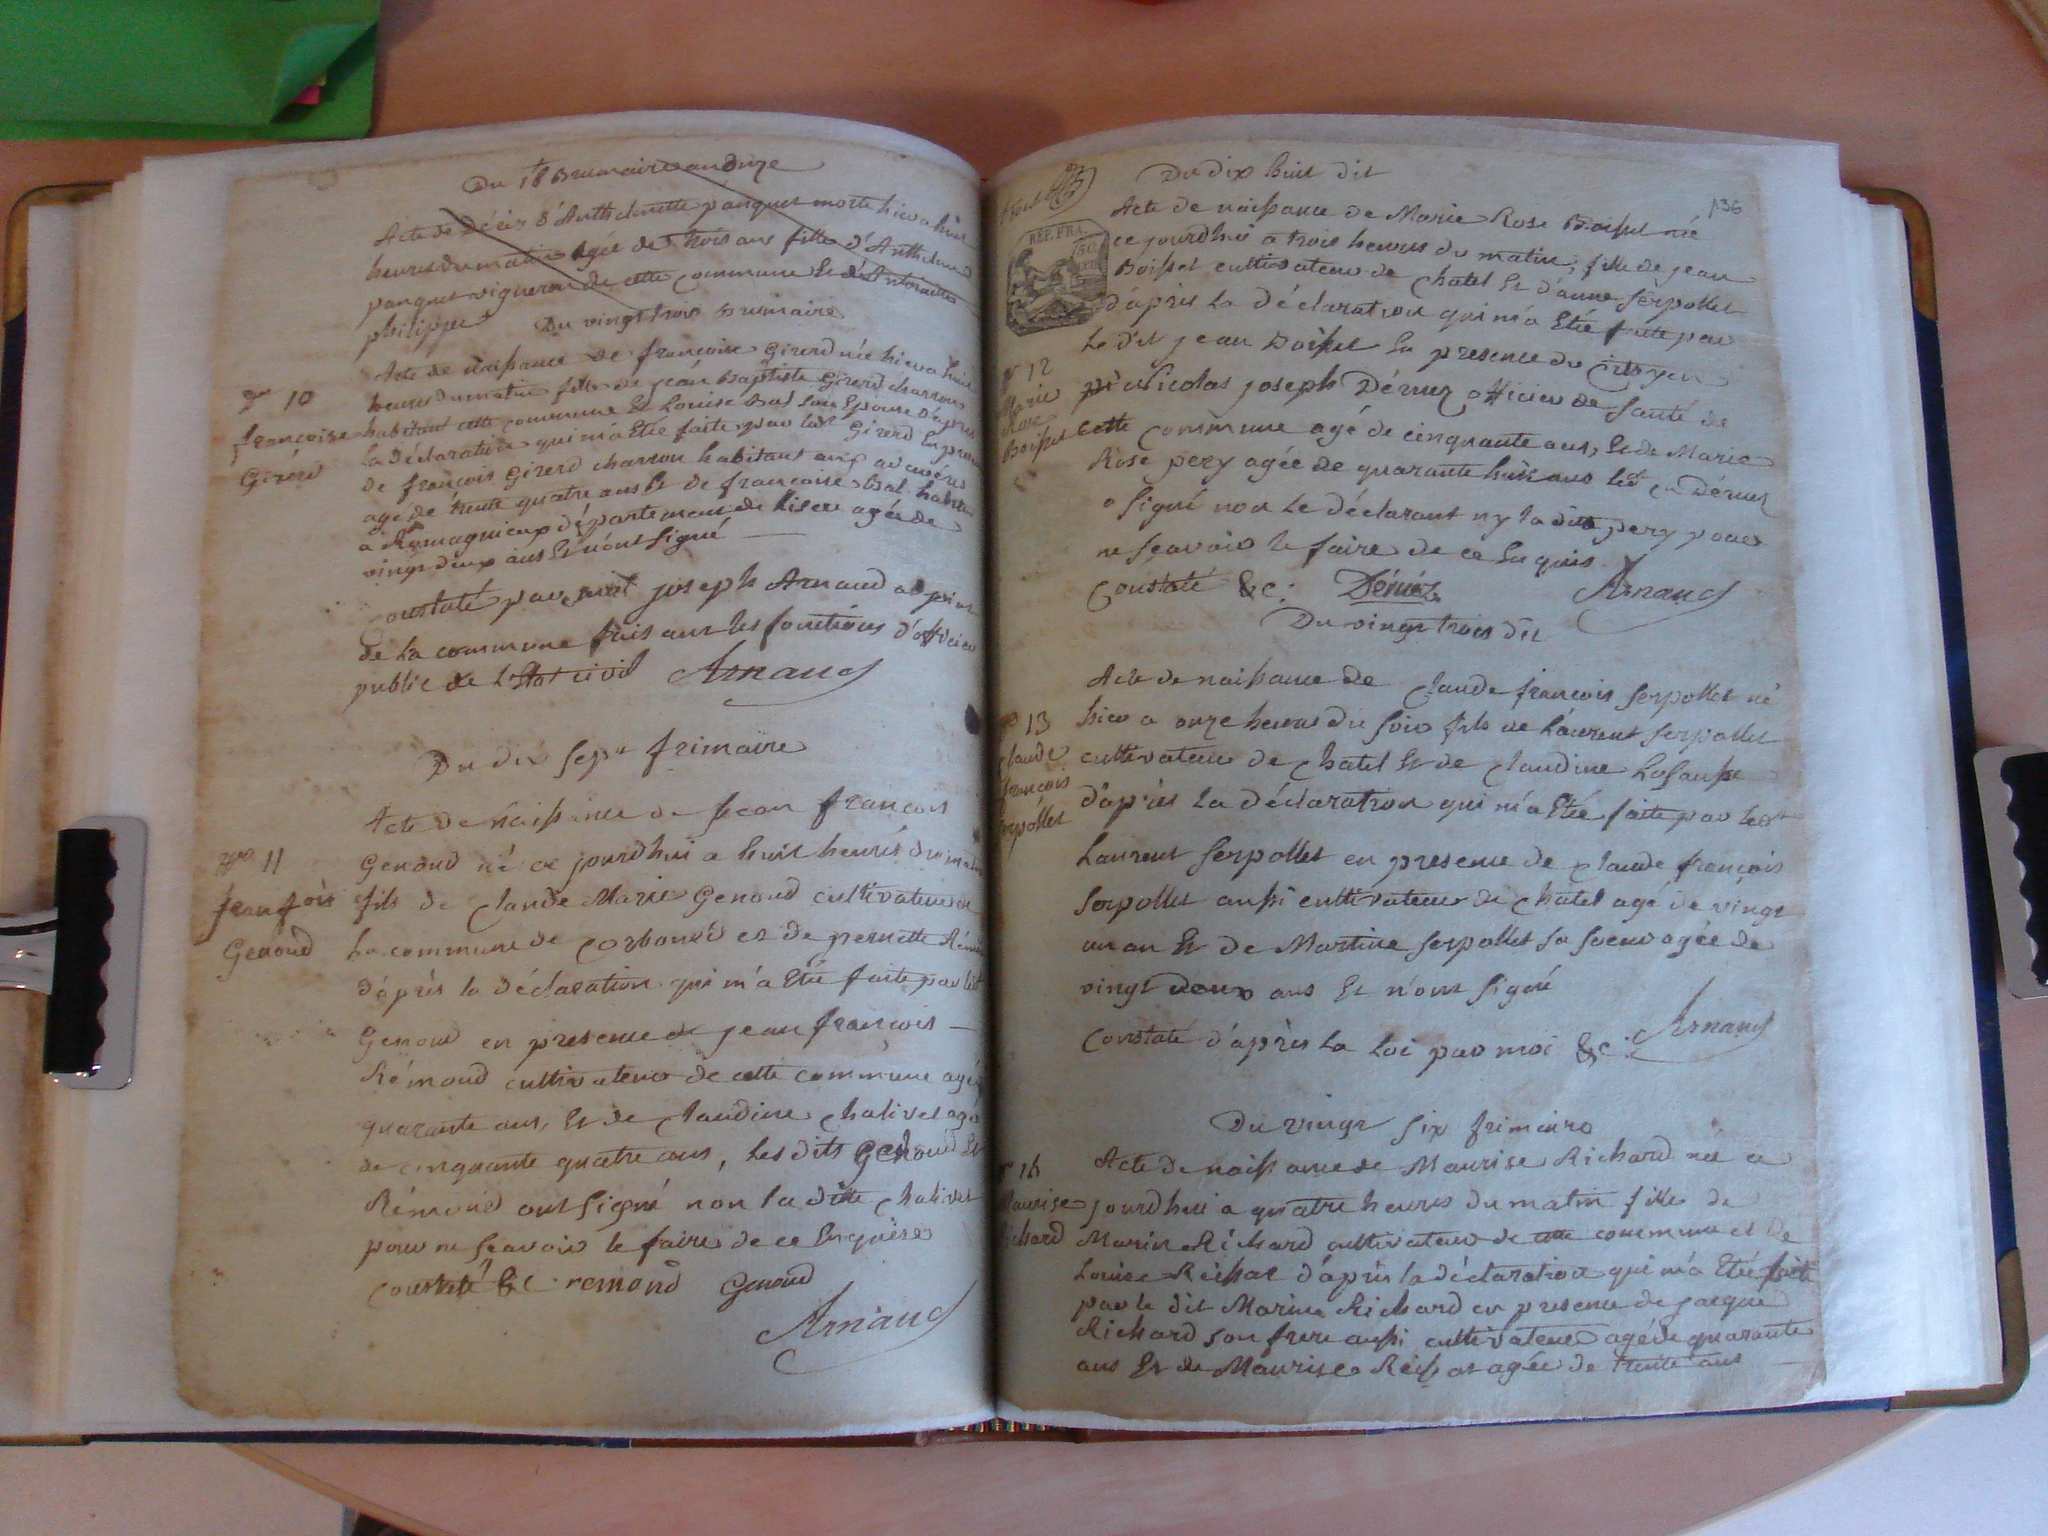 Du 18 Brumaire an onze
Acte de Décès d'Anthelmette panquet morte hier a huit
heures du matin agée de trois ans fille d'Anthelme
panquet vigneron de cette commune Et d'Antoinette
philippe
Du vingt trois Brumaire
Acte de naissance de françoise Girerd née hier a huit
heures du matin fille de jean Baptiste Girerd charron
habitant cette commune Et Louise Bal son Epouse d'après
la Déclaration qui m'a Etée faite par ledt Girerd En presence
de françois Girerd charron habitant aux avenières
agé de trente quatre ans Et de françoise Bal habitant
a Romagnieux département de Lisere agée de
vingt deux ans Et n'ont signé
n° 10
françoise
Girerd
constaté par moi joseph Arnaud adjoint
de la commune faisant les fonctions d'officier
public de L'Etat civil Arnaud
Du dix sept frimaire
Acte de Naissance de jean françois
Genoud né ce jourdhui a huit heures du matin
fils de Claude Marie Genoud cultivateur de
la commune de Corbonod et de pernette Rémond
d'après la déclaration qui m'a Etée faite par ledit
Genoud en presence de jean françois
Rémond cultivateur de cette commune agé
quarante ans, Et de Claudine Chalivet agée
de cinquante quatre ans, Les dits Genoud Et
Rémond ont signé non la ditte chalivet
pour ne sçavoir le faire de ce Enquise
constaté &c remond Genoud
Arnaud
n° 11
jean fois
Genoud
136
Du dix huit dit
REP. FRA.
Acte de naissance de Marie Rose Boisset née
ce jourdhui a trois heures du matin, fille de jean
Boisset cultivateur de Chatel Et d'anne serpollet
d'après la Déclaration qui m'a Etée faite par
Le dit jean Boisset En presence du citoyen
Nicolas joseph Déruez officier de santé de
cette commune agé de cinquante ans, Et de Marie
Rose pery agée de quarante huit ans ledt cn Déruez
a signé non Le déclarant ny la ditte pery pour
ne sçavoir le faire de ce Enquis
Constaté &c. Déruez Arnaud
n° 12
Marie
Rose
Boisset
Du vingt trois dit
Acte de naissance de Claude françois serpollet né
hier a onze heures du soir fils de Laurent serpollet
cultivateur de Chatel Et de Claudine Lafausse
d'après la Déclaration qui m'a Etée faitte par ledt
Laurent serpollet en presence de Claude françois
serpollet aussi cultivateur de Chatel agé de vingt
un an Et de Martine serpollet sa soeur agée de
vingt deux ans Et n'ont signé
Constaté d'après La Loi par moi &c. Arnaud
n° 13
Claude
françois
serpollet
Du vingt six frimaire
Acte de naissance de Maurise Richard née ce
jourdhui a quatre heures du matin fille de
Marin Richard cultivateur de cette commune et De
Louise Reissat d'après la déclaration qui m'a Etée faite
par le dit Marin Richard en presence de jacque
Richard son frere aussi cultivateur agé de quarante
ans Et de Maurise Reissat agée de trente ans
n° 14
Maurise
Richard